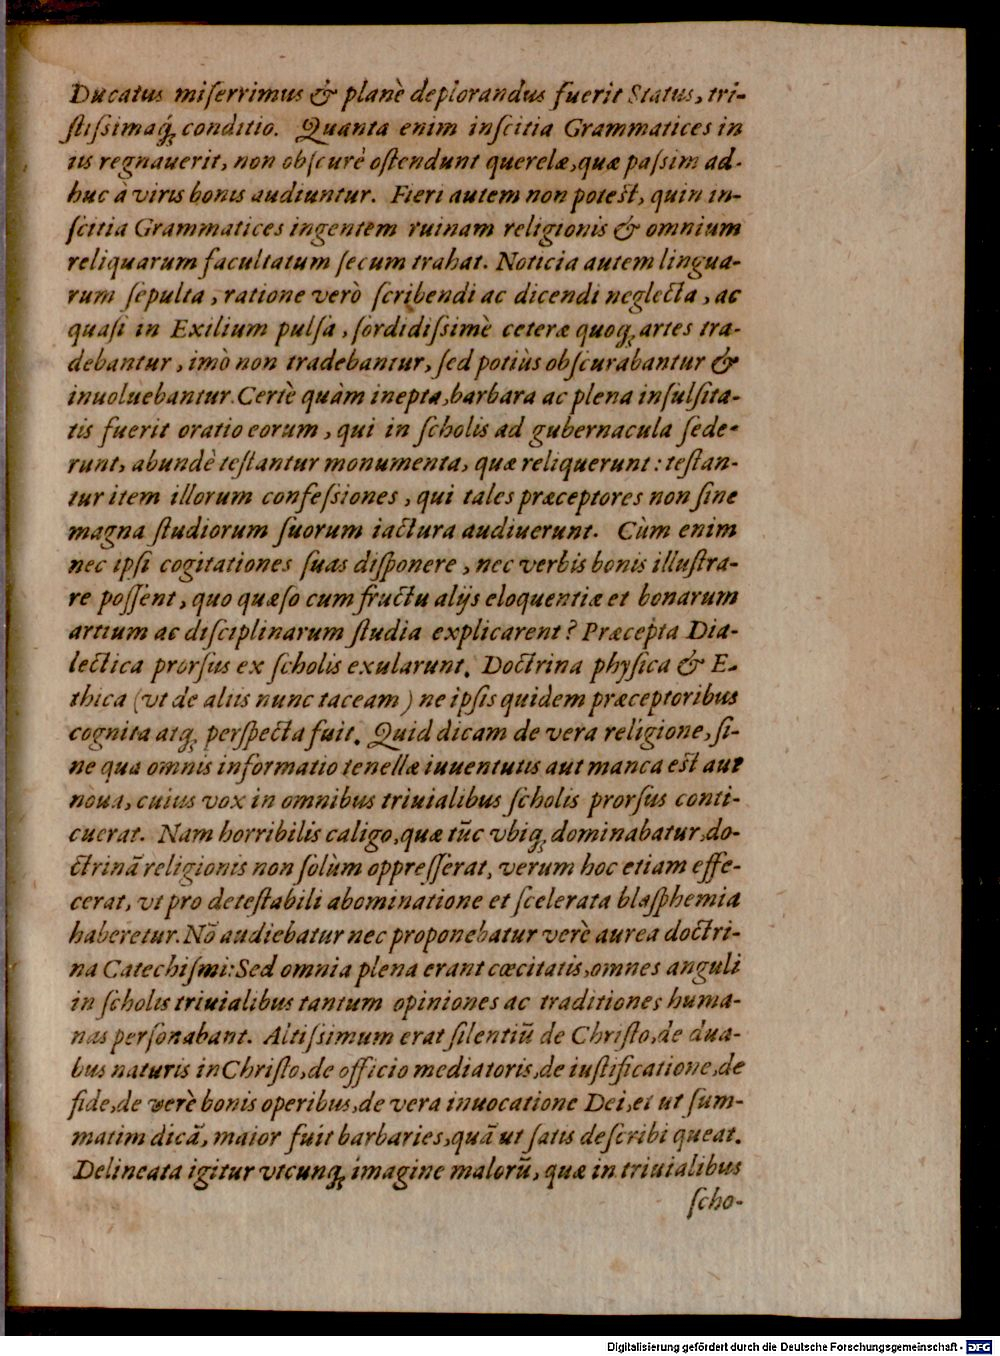 Ducatus miſerrimus & planè deplorandus fuerit Status, tri-
ſtiſsimaq́ꝫ conditio. Quanta enim inſcitia Grammatices in
iis regnauerit, non obſcurè oſtendunt querelæ, quæ paſsim ad-
huc à viris bonis audiuntur. Fieri autem non poteſt, quin in-
ſcitia Grammatices ingentem ruinam religionis & omnium
reliquarum facultatum ſecum trahat. Noticia autem lingua-
rum ſepulta, ratione verò ſcribendi ac dicendi neglecta, ac
quaſi in Exilium pulſa, ſordidiſsimè ceteræ quoqꝫ artes tra-
debantur, imò non tradebantur, ſed potiùs obſcurabantur &
inuoluebantur. Certè quàm inepta, barbara ac plena inſulſita-
tis fuerit oratio eorum, qui in ſcholis ad gubernacula ſede-
runt, abundè teſtantur monumenta, quæ reliquerunt: teſtan-
tur item illorum confeſsiones, qui tales præceptores non ſine
magna ſtudiorum ſuorum iactura audiuerunt. Cùm enim
nec ipſi cogitationes ſuas diſponere, nec verbis bonis illuſtra-
re poſſent, quo quæſo cum fructu alijs eloquentiæ et bonarum
artium ac diſciplinarum ſtudia explicarent? Præcepta Dia-
lectica prorſus ex ſcholis exularunt. Doctrina phyſica & E-
thica (vt de aliis nunc taceam) ne ipſis quidem præceptoribus
cognita atqꝫ perſpecta fuit. Quid dicam de vera religione, ſi-
ne qua omnis informatio tenellæ iuuentutis aut manca eſt aut
noua, cuius vox in omnibus triuialibus ſcholis prorſus conti-
cuerat. Nam horribilis caligo, quæ tũc vbiqꝫ dominabatur, do-
ctrinã religionis non ſolùm oppreſſerat, verum hoc etiam effe-
cerat, vt pro deteſtabili abominatione et ſcelerata blaſphemia
haberetur. Nõ audiebatur nec proponebatur verè aurea doctri-
na Catechiſmi: Sed omnia plena erant cœcitatis, omnes anguli
in ſcholis triuialibus tantum opiniones ac traditiones huma-
nas perſonabant. Altiſsimum erat ſilentiũ de Chriſto, de dua-
bus naturis in Chriſto, de officio mediatoris, de iuſtificatione, de
fide, de verè bonis operibus, de vera inuocatione Dei, et ut ſum-
matim dicã, maior fuit barbaries, quã ut ſatis deſcribi queat.
Delineata igitur vtcunqꝫ imagine malorũ, quæ in triuialibus
ſcho-
Digitalisierung gefördert durch die Deutsche Forschungsgemeinschaft - DFG